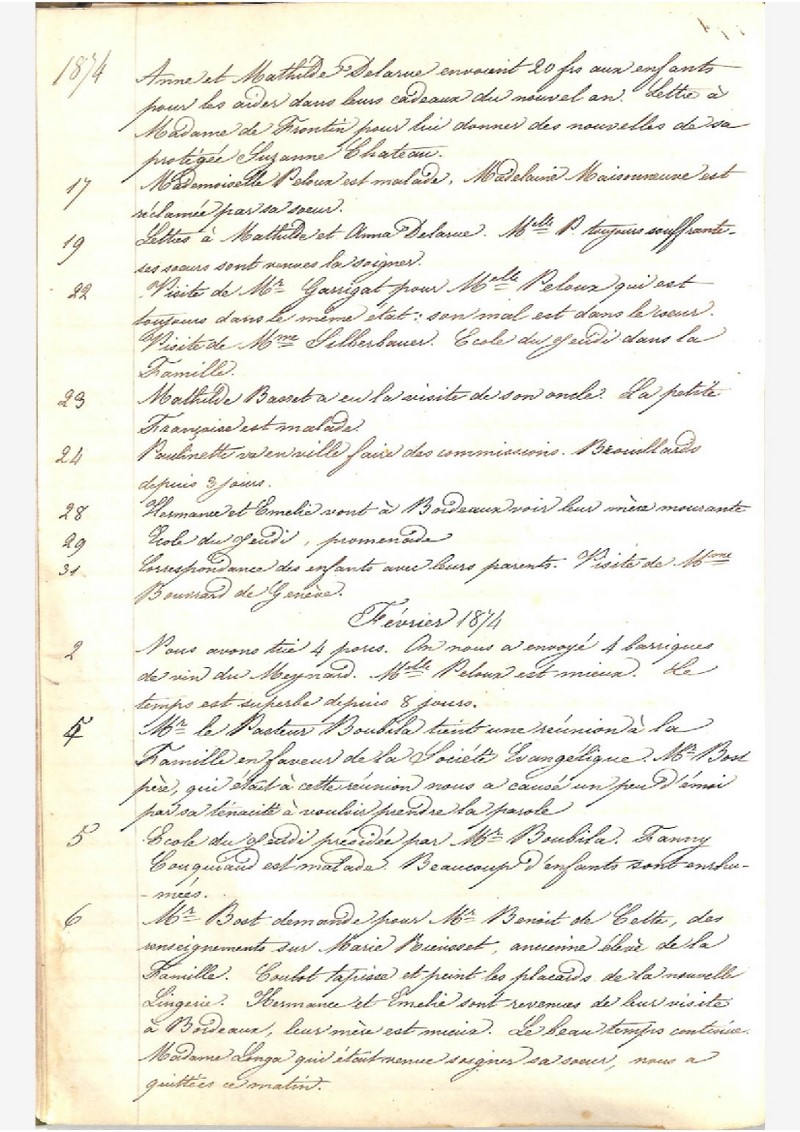 1874 Anne et Mathilde Delarue envoient 20 frs aux enfants
pour les aider dans leurs cadeaux du nouvel an. Lettre à
Madame de Frontin pour lui donner des nouvelles de sa
protégée Suzanne Chateau.
17 Mademoiselle Peloux est malade. Madelaine Maisonneuve est
réclamée par sa soeur.
19 Lettres à Mathilde et Anna Delarue. Melle P. toujours souffrante.
ses soeurs sont venues la soigner.
22 Visite de Mr Garrigat pour Melle Peloux qui est
toujours dans le même état : son mal est dans le coeur.
Visite de Mme Silberbauer. Ecole du jeudi dans la
Famille.
23 Mathilde Basset a eu la visite de son oncle. La petite
Françoise est malade
24 Paulinette va en ville faire des commissions. Brouillards
depuis 3 jours.
28 Hermance et Emelie vont à Bordeaux voir leur mère mourante
29 Ecole du jeudi, promenade
31 Correspondance des enfants avec leurs parents. Visite de Mme
Bouvard de Genève.
Février 1874
2 Nous avons tué 4 porcs. On nous a envoyé 4 barriques
de vin du Meynard. Melle Peloux est mieux. Le
temps est superbe depuis 8 jours.
4 Mr le Pasteur Boubila tient une réunion à la
Famille en faveur de la Société Evangélique. Mr Bost
père, qui était à cette réunion nous a causé un peu d'émoi
par sa ténacité à vouloir prendre la parole
5 Ecole du jeudi présidée par Mr Boubila. Fanny
est malade. Beaucoup d'enfants sont enrhu-
-mées.
6 Mr Bost demande pour Mr Benoit de Cette, des
renseignements sur Marie, ancienne élève de la
Famille. Coulot tapisse et peint les placards de la nouvelle
Lingerie. Hermance et Emelie sont revenues de leur visite
à Bordeaux, leur mère est mieux. Le beau temps continue.
Madame Longa qui était venue soigner sa soeur, nous a
quittées ce matin.